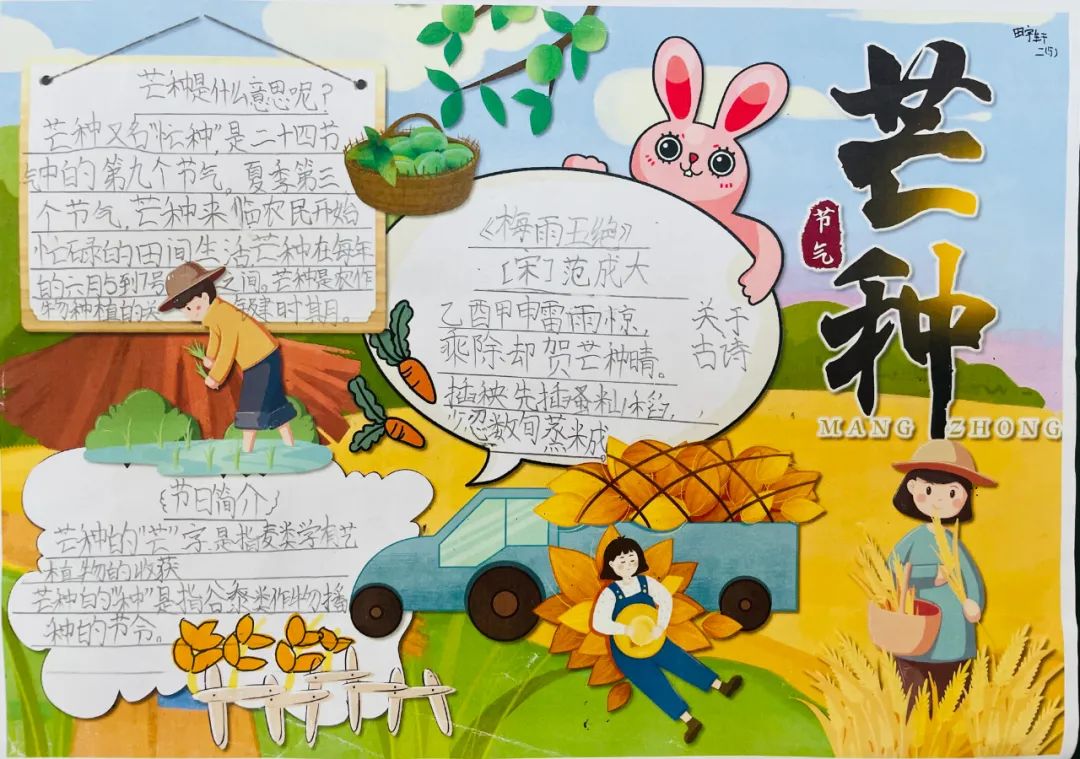 芒种是什么意思呢？
芒种又名“忙种”，是二十四节
气中的第九个节气。夏季第三
个节气，芒种来临农民开始
忙碌的田间生活芒种在每年
的六月5到7号 之间。芒种是农作
物种植的关 键时其月。
《梅雨五绝》
[宋]范成大
乙酉甲申雷雨惊，
乘除却贺芒种晴。
插秧先插蚤籼稻，
少忍数旬蒸米成。
关于
古诗
田宇轩
二(5)
芒种
节气
MANG ZHONG
{节日简介}
芒种的“芒”字是指麦类学有艺
植物的收获
芒种的“种”是指谷黍类作物播
种的节令。